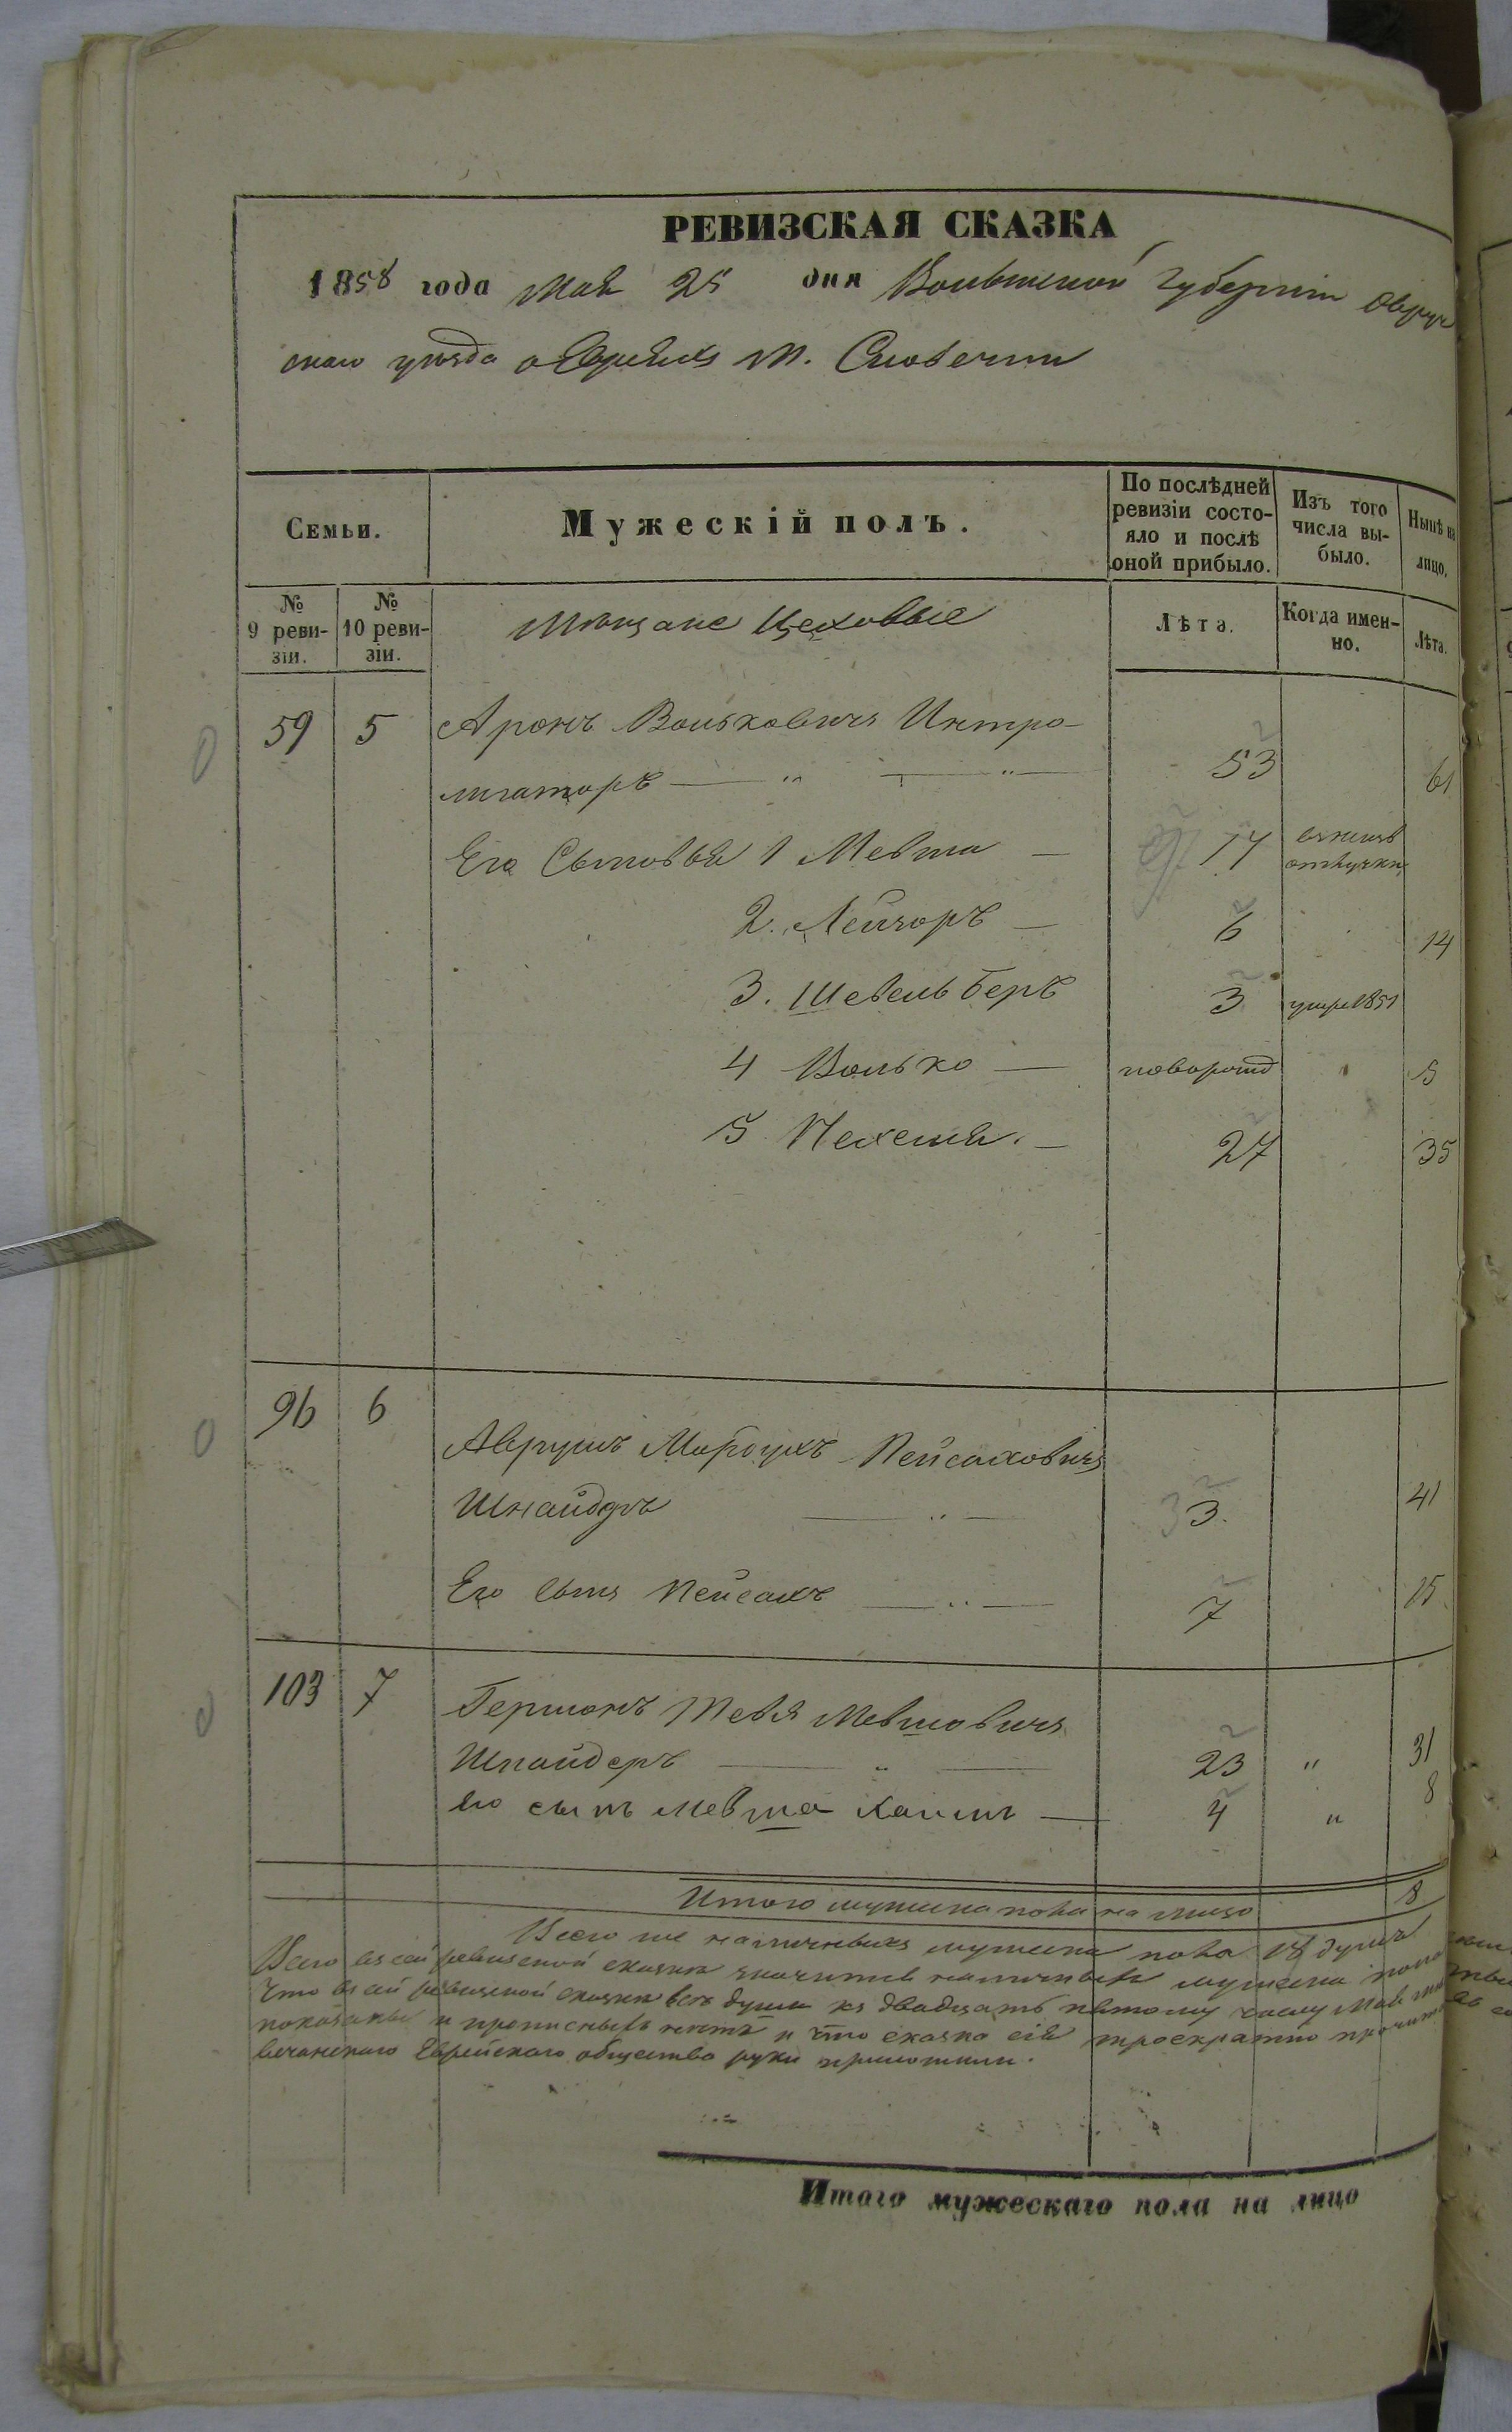 РЕВИЗСКАЯ СКАЗКА
1858 года Мая 25 дня Волынской Губерніи Овруч
скаго уѣзда о Евреяхъ М. Словечни
Семьи.
Мужескій полъ.
По послѣдней ревизіи состо-
яло и послѣ
оной прибыло.
Изъ того
числа вы-
было.
Нынѣ на
лицо.
№
9 реви-
зіи.
№
10 реви-
зіи.
Мѣщане Цеховые
Лѣта.
Когда имен-
но.
Лѣта.
59 5 Аронъ Вольковичъ Интро-
лигаторъ — " — " — 53 61
Его Сыновья 1 Мевша — 14
отлучки
2. Лейзоръ — 6 14
3. Шевель Беръ 3 умре 1851
4 Волько — новорожд 5
5 27 35
96 6
Аврумъ Мордухъ Пейсаховичъ
Шнайдръ — " — 33. 41
Его сынъ Пейсахъ — " — 7 15
103 7 Гершонъ Тевя Мевшовичъ
Шнайдеръ — " — 23 " 31
его сынъ Мевша Хаимъ — 4 " 8
Итого мужеска пола на лицо 8
Всего же наличныхъ мужска пола 18 душъ
Всего въ сей ревизской сказкѣ значится наличныхъ мужеска пола
Что въ сей ревизской сказкѣ всѣ души къ двадцать пятому числу Мая
показаны и прописныхъ нѣтъ и что сказка сія троекратно
вечанскаго Еврейскаго общества руки приложили.
Итого мужескаго пола на лицо